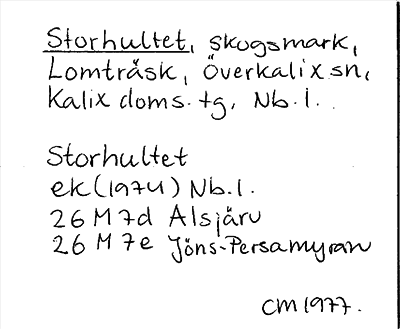 Storhultet, skogsmark,
Lomträsk, Överkalix sn,
Kalix doms. tg, Nb. l.
Storhultet
ek (1974) Nb. l.
26 M 7d Alsjärv
26 M 7e Jöns-Persamyran
CM 1977.